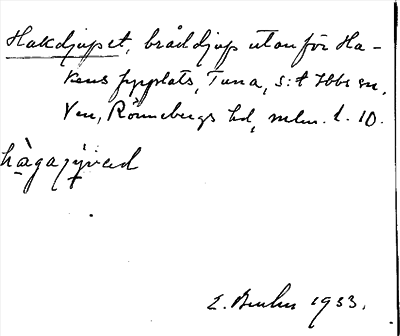 Hakdjupet, bråddjup utanför Ha-
kens fyrplats, Tuna, S:t Ibbs sn,
Ven, Rönnebergs hd, mlm. l. 10.
hàgajýved
1933.